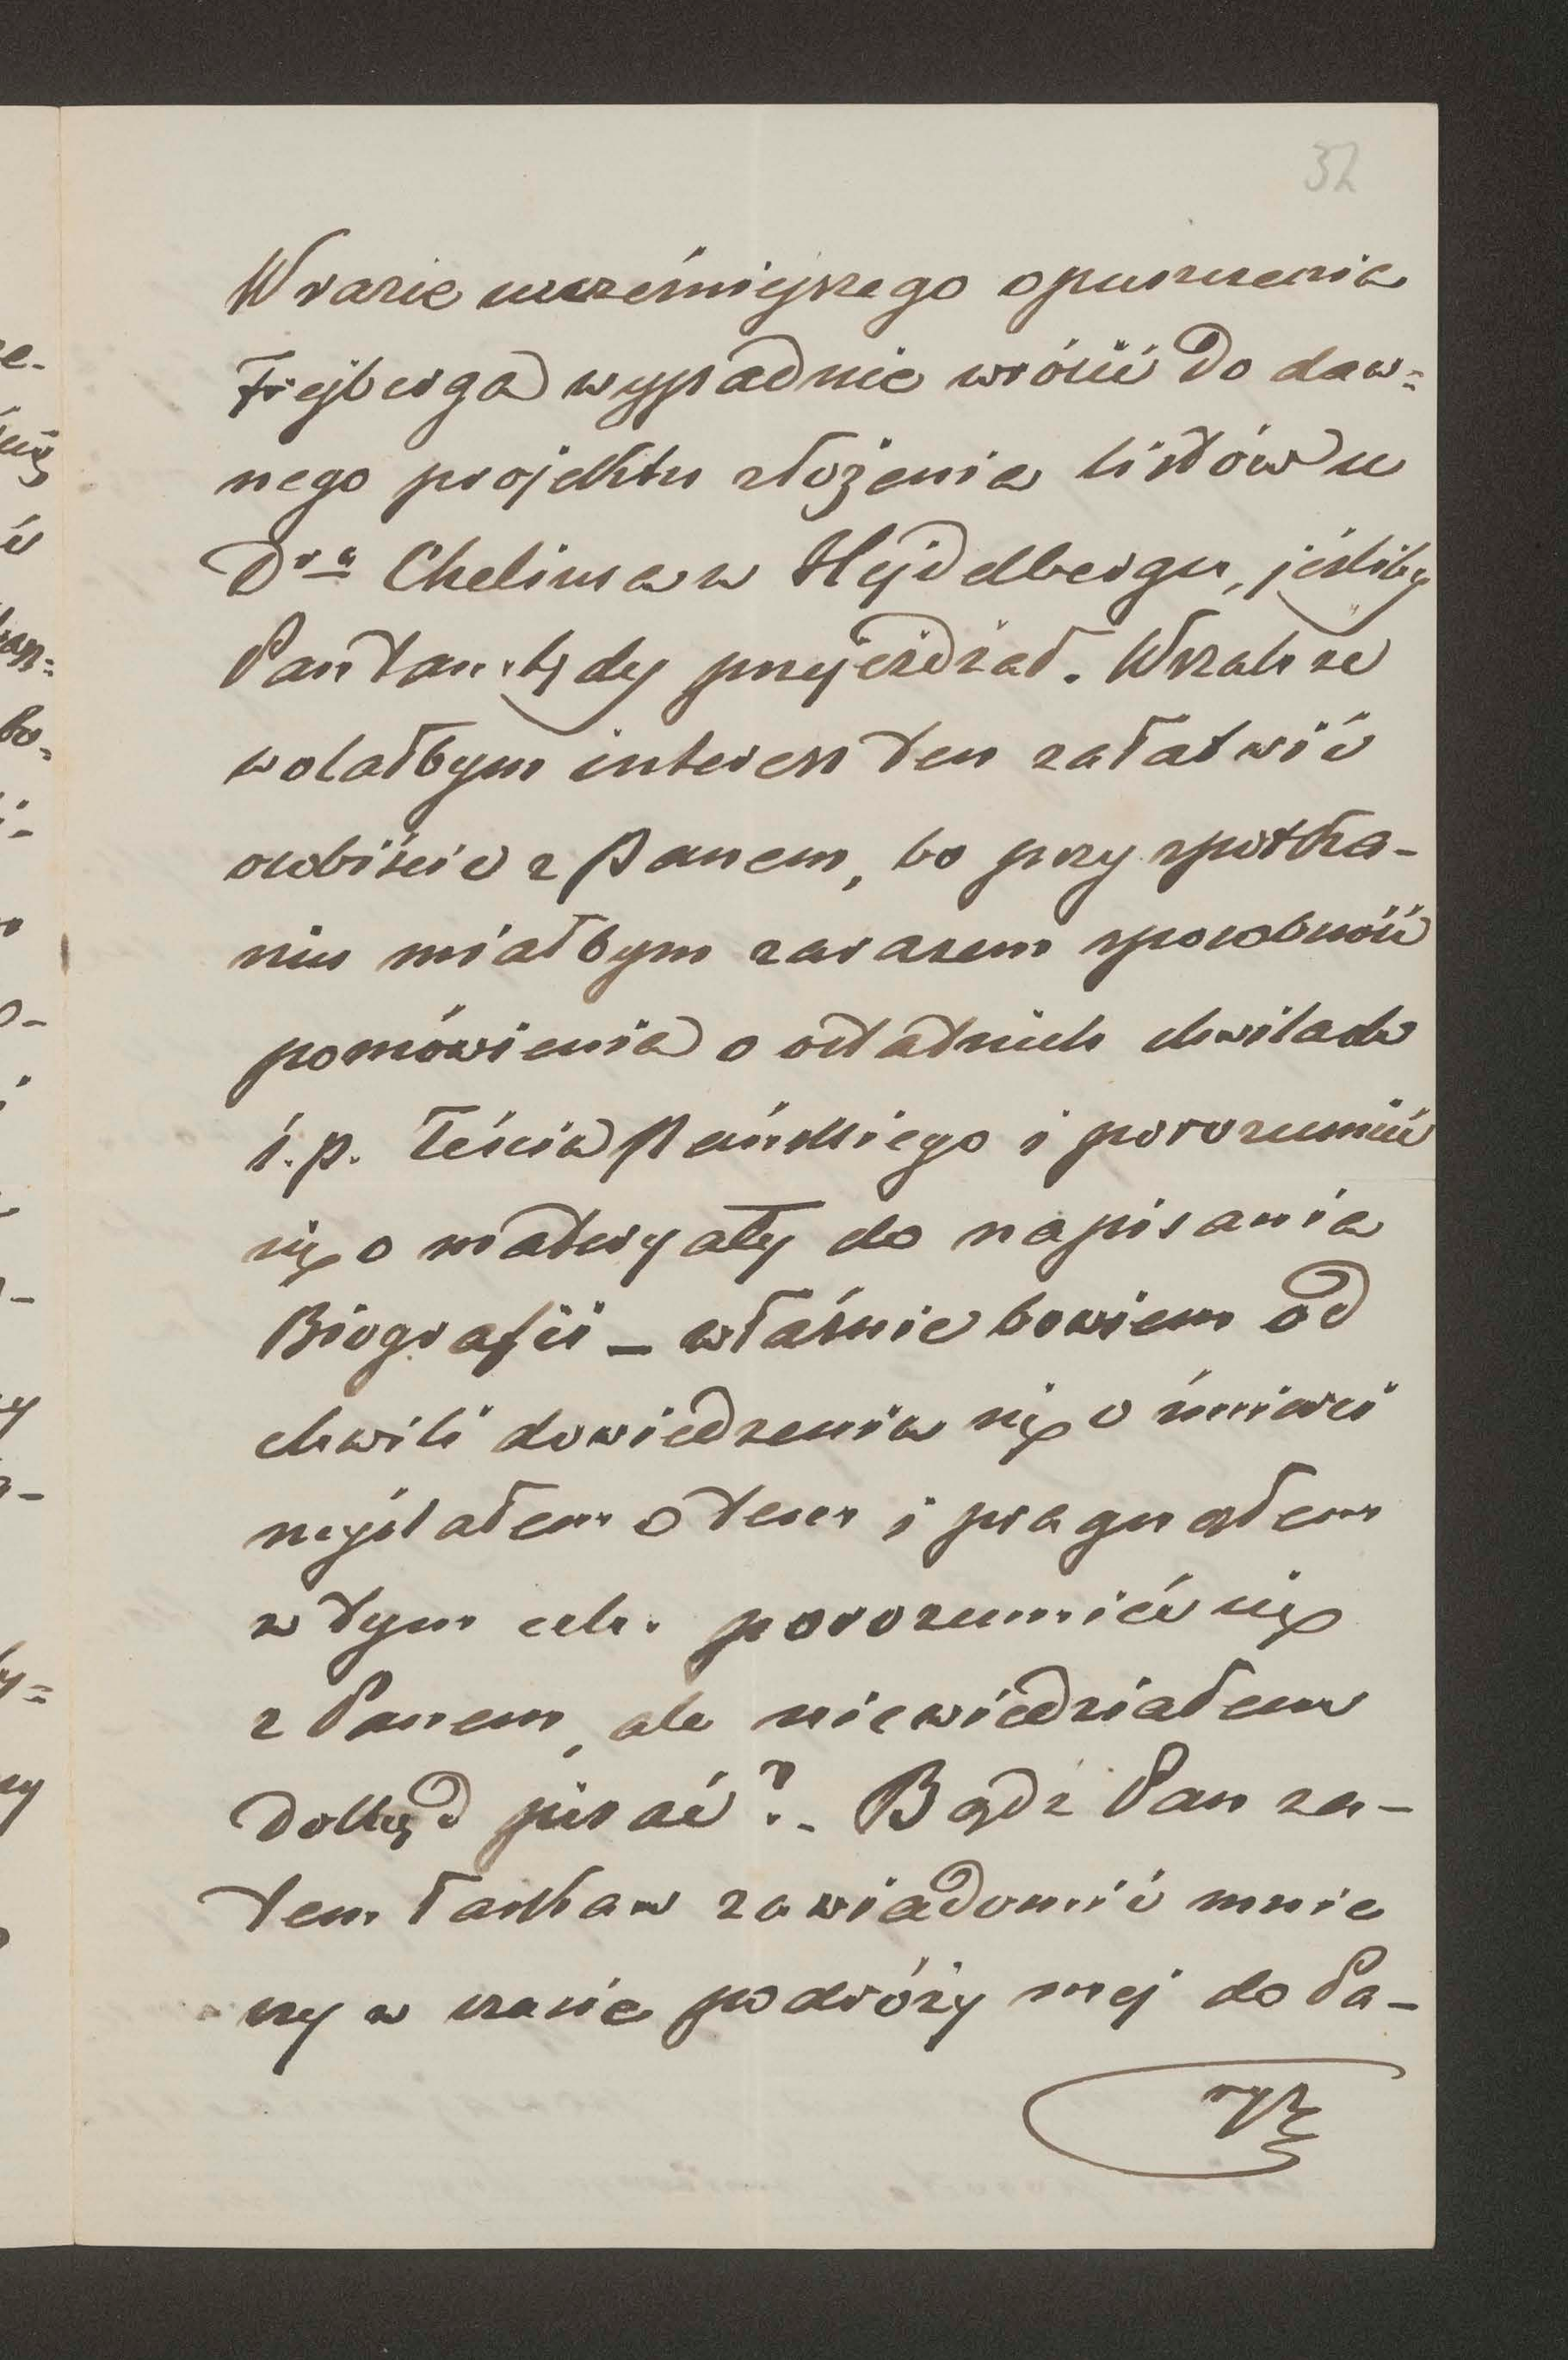 32
W razie wcześniejszego opuszczenia
Frejberga wypadnie wrócić do daw=
nego projektu złożenia listów u
Dra Cheliusa w Hejdelbergu, jeśliby
Pan tamtędy przejeżdżał. Wszakże
wolałbym interess ten załatwić
osobiście z Panem, bo przy spotka-
niu miałbym zarazem sposobność
pomówienia o ostatnich chwilach
ś.p. Teścia Pańskiego i porozumieć
się o materyały do napisania
Biografii – właśnie bowiem od
chwili dowiedzenia się o śmierci
myślałem o tem i pragnąłem
w tym celu porozumieć się
z Panem, ale niewiedziałem
dokąd pisać?. Bądź Pan za-
tem łaskaw zawiadomić mnie
czy w czasie podróży mej do Pa-
ryż